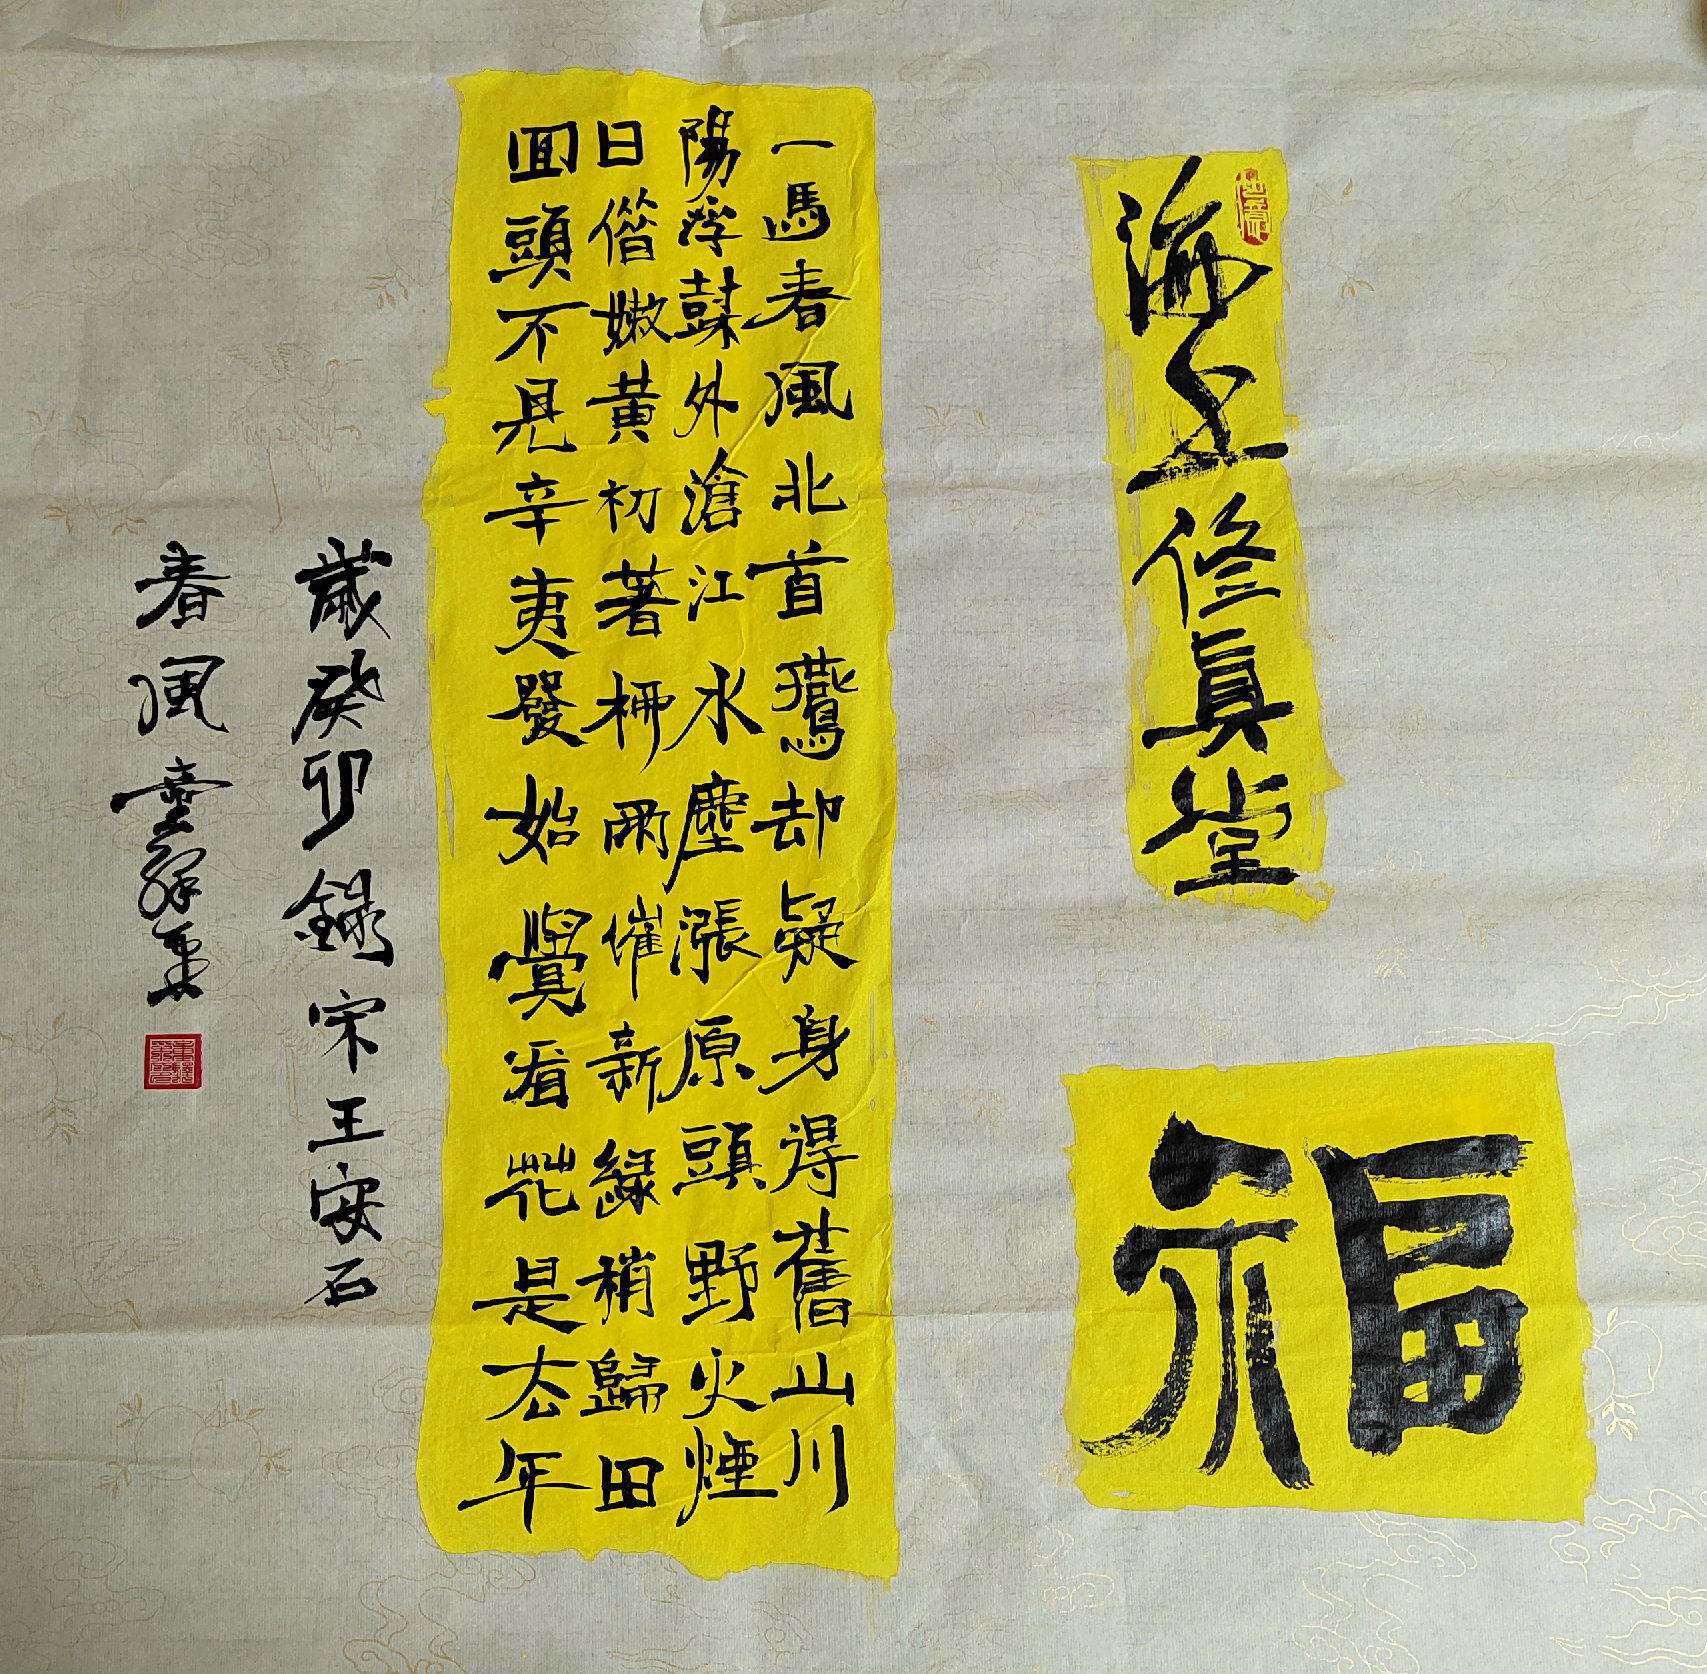 海上修真堂
福
一馬春風北首鷰却疑身得舊山川
陽浮樹外滄江水塵漲原頭野火煙
日借嫩黃初著柳雨催新綠稍歸田
回頭不見辛夷發始覺看花是去年
歲癸卯錄宋王安石
春風